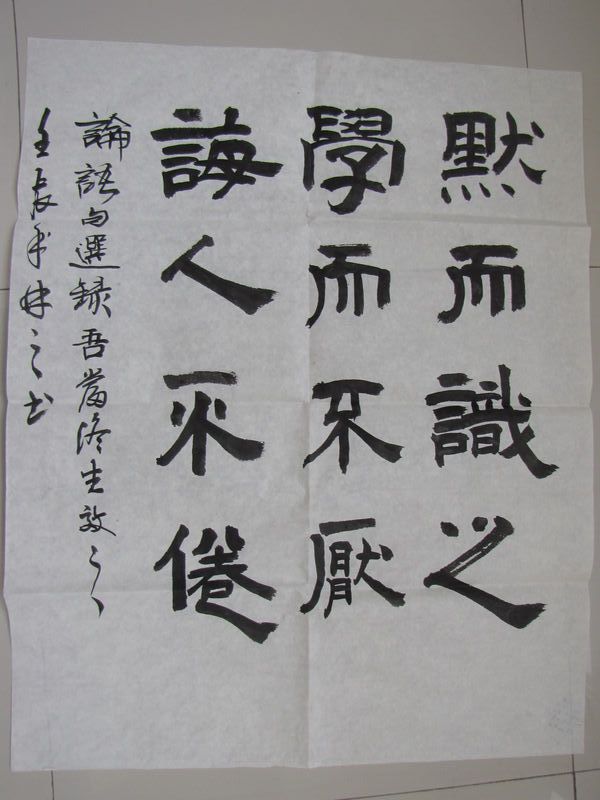 默而識之
學而不厭
誨人不倦
論語句選録吾當終生效之
壬辰年之书